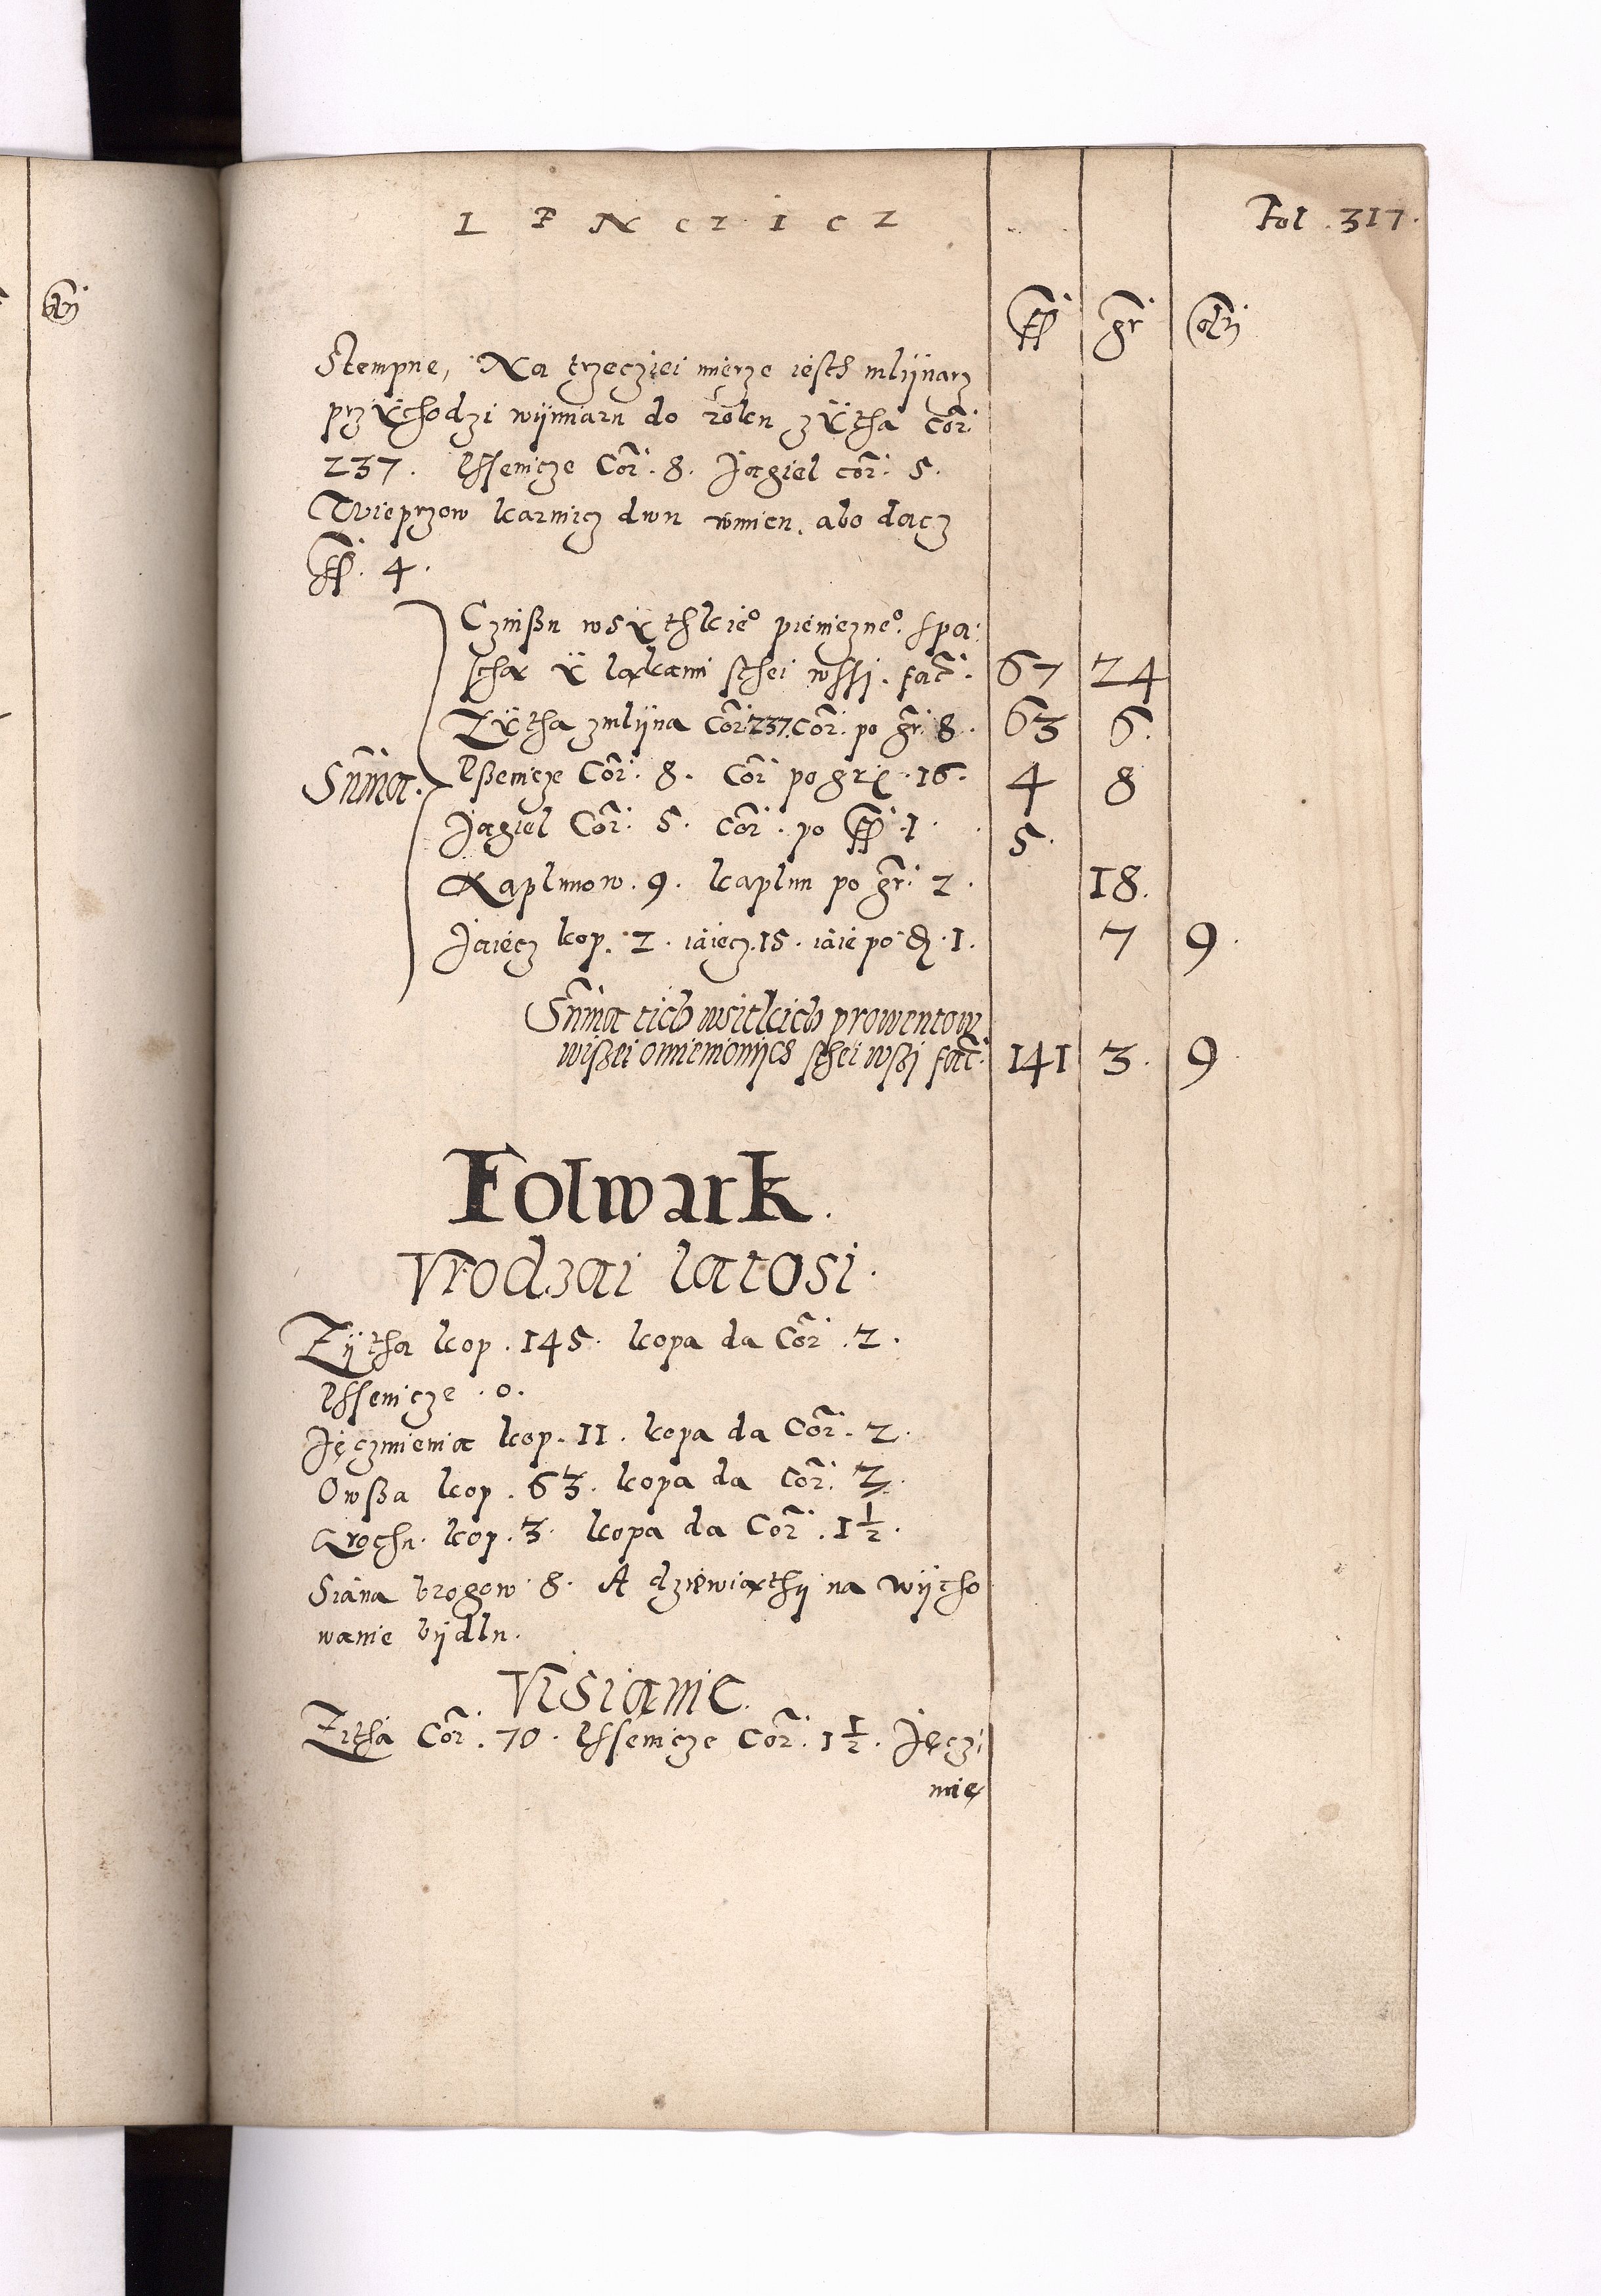 Fol. 317.
ff gr
Stempne, Na trzecziei mierze iesth mlijnarz
przÿchodzi wijmiaru do roku zÿtha Cor.
237. Pssenicze Cor. 8. Jagiel cor. 5.
Wieprzow karmicz dwu powinien, abo dacz
ff. 4.
Czinßu wsÿthkie° pieniezne°. spa:
scha ÿ łąkami sthei wssi. facit. 67 24
Zÿtha z mlijna Cor. 237. Cor. po gr. 8. 63 6.
Suma. Pßenicze Cor. 8. Cor po gr. 16. 4 8
Jagiel Cor. 5. Cor. po ff. 1. 5.
Kaplunow. 9. kaplun po gr. 2. 18.
Jaiecz kop. 2. iaiecz. 15. iaie po d. 1. 7 9.
Suma tich wsitkich prowentow
wißei omienionijch sthei wßi fac. 141 3. 9.
Folwark.
Vrodzai latosi.
Zÿtha kop. 145. kopa da Cor. 2.
Pssenicze. 0.
Jęczmienia kop. 11. kopa da Cor. 2.
Owßa kop. 63. kopa da Cor. 2.
Grochu. kop. 3. kopa da Cor. 1 1/2.
Siana brogow 8. A dziewiąthÿ na wijcho
wanie bijdlu.
Vsianie.
Zitha Cor. 70. Pssenicze Cor. 1 1/2. Jęcz:
mie